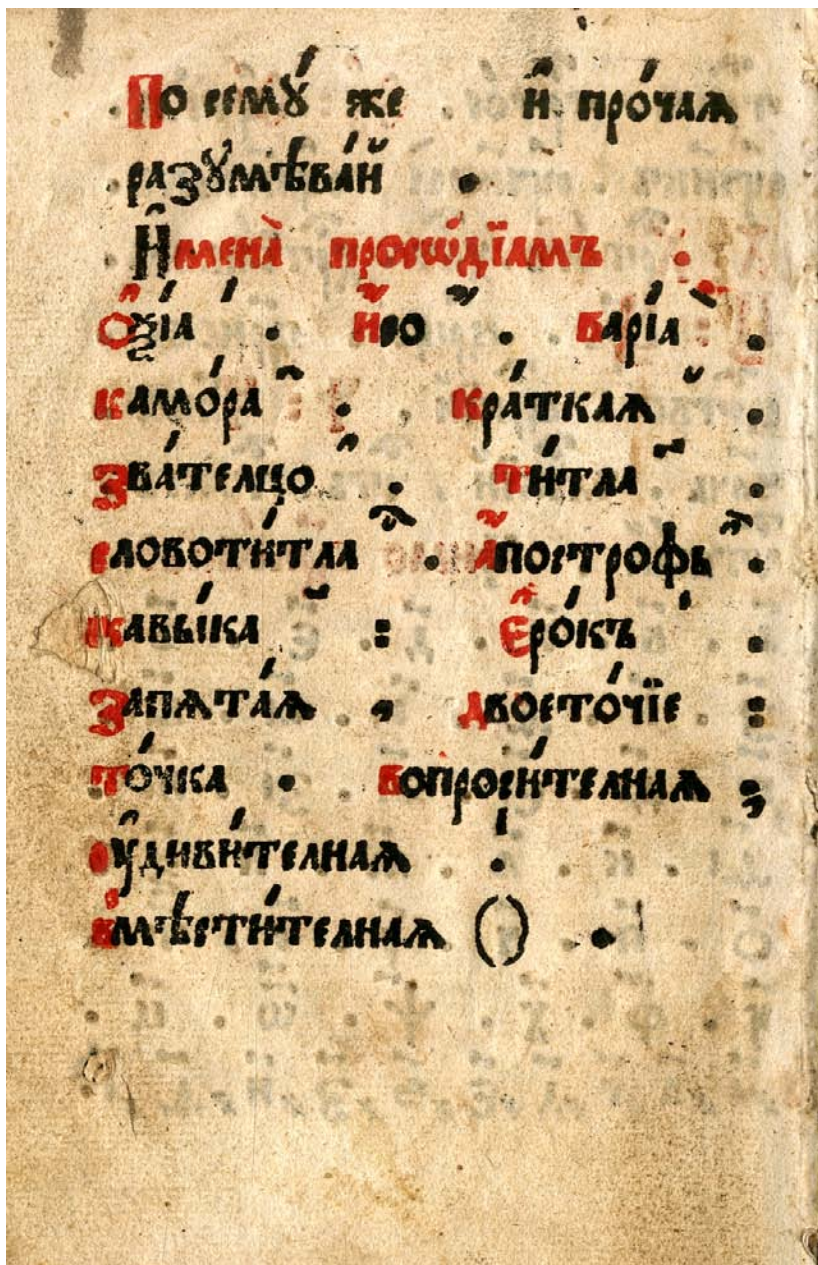 По семꙋ́ же и҆̀ про́чаѧ
разꙋмѣва́й .
И҆мена̀ просѡді́амъ :
Ѻ҆ѯі́а ́ . И҆со ҆́ . Варі́а ̀ .
Камо́ра ̑ . Кра́ткаѧ ̆ .
Зва́телцо ҆ . Ти́тла ҃ .
Словоти́тла ⷭ҇ . А҆построф̾ь ҆̀ .
Кавы́ка ̏ : Є҆ро́къ ̾ .
Запѧта́ѧ , Двосто́чїе :
То́чка . Вопроси́телнаѧ ;
Оу҆диви́телнаѧ !
Вмѣсти́телнаѧ () .